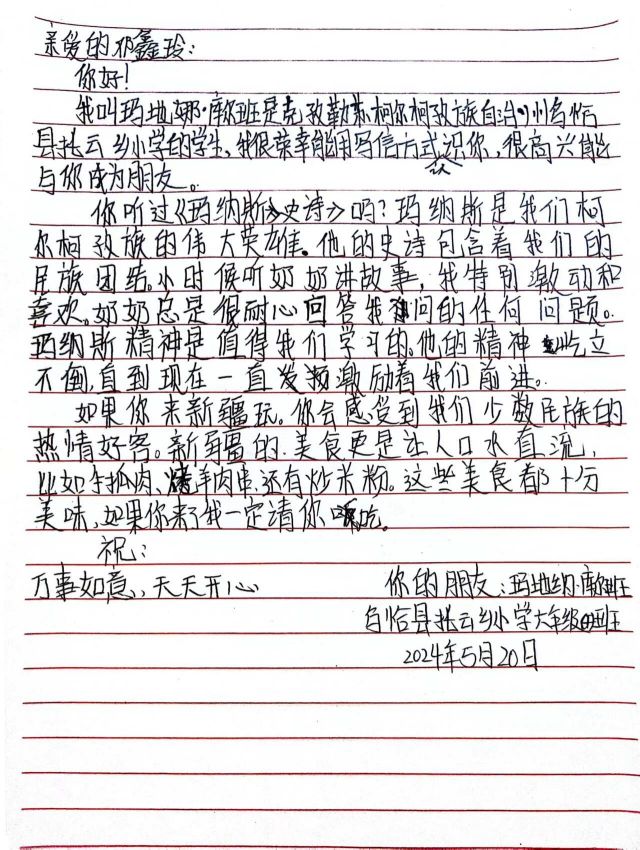 亲爱的邓鑫玲：
你好！
我叫玛地娜·库尔班是克孜勒苏柯尔柯孜族自治州乌恰
县托云乡小学的学生，我很荣幸能用写信方式认识你，很高兴能
与你成为朋友。
你听过《玛纳斯》史诗》吗？玛纳斯是我们柯
尔柯孜族的伟大英雄。他的史诗包含着我们的
民族团结。小时候听奶奶讲故事，我特别激动和
喜欢。奶奶总是很耐心回答我问的任何问题。
玛纳斯精神是值得我们学习的。他的精神屹立
不倒，直到现在一直发激励着我们前进。
如果你来新疆玩。你会感受到我们少数民族的
热情好客。新疆的美食更是让人口水直流，
比如手抓肉、烤羊肉串，还有炒米粉。这些美食都十分
美味，如果你来了我一定请你吃。
祝：
万事如意，天天开心
你的朋友：玛地纳·库尔班
乌恰县托云乡小学六年级班
2024年5月20日